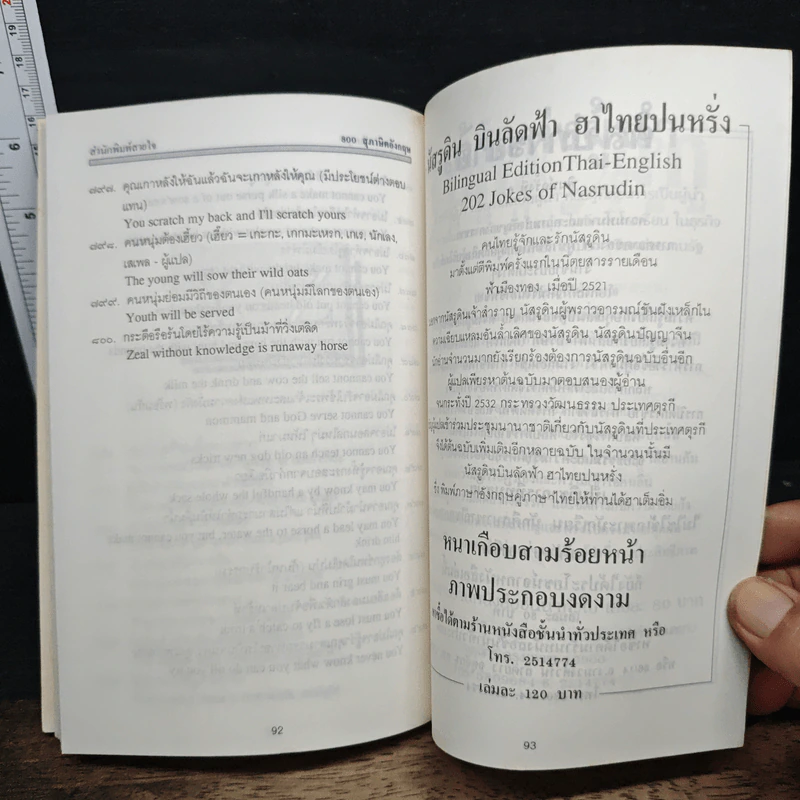 สำนักพิมพ์สายใจ
๘๐๐ สุภาษิตอังกฤษ
๗๙๗. คุณเกาหลังให้ฉันแล้วฉันจะเกาหลังให้คุณ (มีประโยชน์ต่างตอบ
แทน)
You scratch my back and I'll scratch yours
๗๙๘. คนหนุ่มต้องเฮี้ยว (เฮี้ยว = เกะกะ, เกกมะเหรก, เกเร, นักเลง,
เสเพล - ผู้แปล)
The young will sow their wild oats
๗๙๙. คนหนุ่มย่อมมีวิถีของตนเอง (คนหนุ่มมีโลกของตนเอง)
Youth will be served
๘๐๐. กระตือรือร้นโดยไร้ความรู้เป็นม้าที่วิ่งเตลิด
Zeal without knowledge is runaway horse
92
นัสรูดิน บินลัดฟ้า ฮาไทยปนหรั่ง
Bilingual EditionThai-English
202 Jokes of Nasrudin
คนไทยรู้จักและรักนัสรูดิน
มาตั้งแต่ตีพิมพ์ครั้งแรกในนิตยสารรายเดือน
ฟ้าเมืองทอง เมื่อปี 2521
จากนัสรูดินเจ้าสำราญ นัสรูดินผู้พราวอารมณ์ขันฝังเหล็กใน
ความเฉียบแหลมอันล้ำเลิศของนัสรูดิน นัสรูดินปัญญาจีน
อ่านจำนวนมากยังเรียกร้องต้องการนัสรูดินฉบับอื่นอีก
ผู้แปลเพียรหาต้นฉบับมาตอบสนองผู้อ่าน
จนกระทั่งปี 2532 กระทรวงวัฒนธรรม ประเทศตุรกี
ผู้แปลเข้าร่วมประชุมนานาชาติเกี่ยวกับนัสรูดินที่ประเทศตุรกี
จึงได้ต้นฉบับเพิ่มเติมอีกหลายฉบับ ในจำนวนนั้นมี
นัสรูดินบินลัดฟ้า ฮาไทยปนหรั่ง
พิมพ์ภาษาอังกฤษคู่ภาษาไทยให้ท่านได้ฮาเต็มอิ่ม
หนาเกือบสามร้อยหน้า
ภาพประกอบงดงาม
ซื้อได้ตามร้านหนังสือชั้นนำทั่วประเทศ หรือ
โทร. 2514774
เล่มละ 120 บาท
93